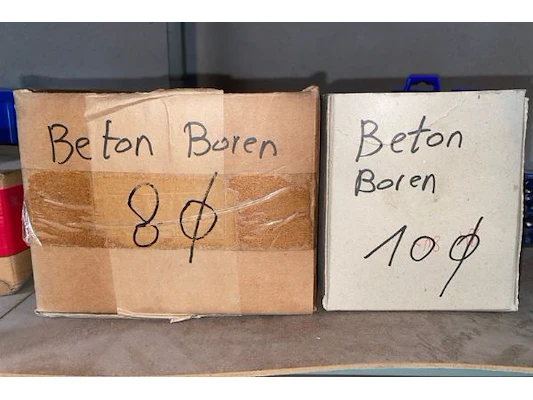 Beton Boren
8 ø
Beton
Boren
10 ø